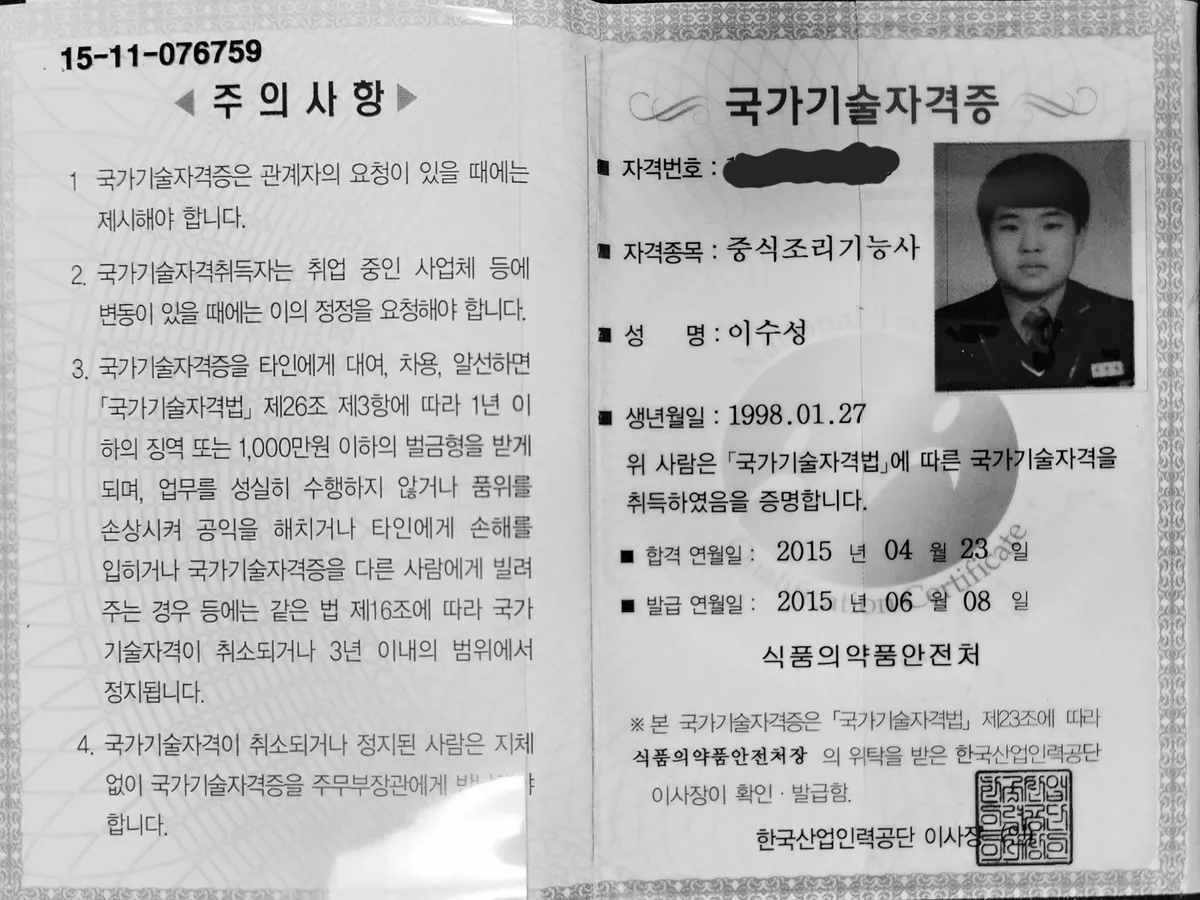 15-11-076759
주의사항
1 국가기술자격증은 관계자의 요청이 있을 때에는
제시해야 합니다.
2. 국가기술자격취득자는 취업 중인 사업체 등에
변동이 있을 때에는 이의 정정을 요청해야 합니다.
3. 국가기술자격증을 타인에게 대여, 차용, 알선하면
「국가기술자격법」 제26조 제3항에 따라 1년 이
하의 징역 또는 1,000만원 이하의 벌금형을 받게
되며, 업무를 성실히 수행하지 않거나 품위를
손상시켜 공익을 해치거나 타인에게 손해를
입히거나 국가기술자격증을 다른 사람에게 빌려
주는 경우 등에는 같은 법 제16조에 따라 국가
기술자격이 취소되거나 3년 이내의 범위에서
정지됩니다.
4. 국가기술자격이 취소되거나 정지된 사람은 지체
없이 국가기술자격증을 주무부장관에게
합니다.
국가기술자격증
■ 자격번호 :
■ 자격종목 : 중식조리기능사
■ 성 명 : 이수성
■ 생년월일 : 1998.01.27
위 사람은 「국가기술자격법」에 따른 국가기술자격을
취득하였음을 증명합니다.
■ 합격 연월일 : 2015 년 04 월 23 일
■ 발급 연월일 : 2015 년 06 월 08 일
식품의약품안전처
※ 본 국가기술자격증은 「국가기술자격법」 제23조에 따라
식품의약품안전처장 의 위탁을 받은 한국산업인력공단
이사장이 확인·발급함.
한국산업인력공단 이사장
National
Certificate